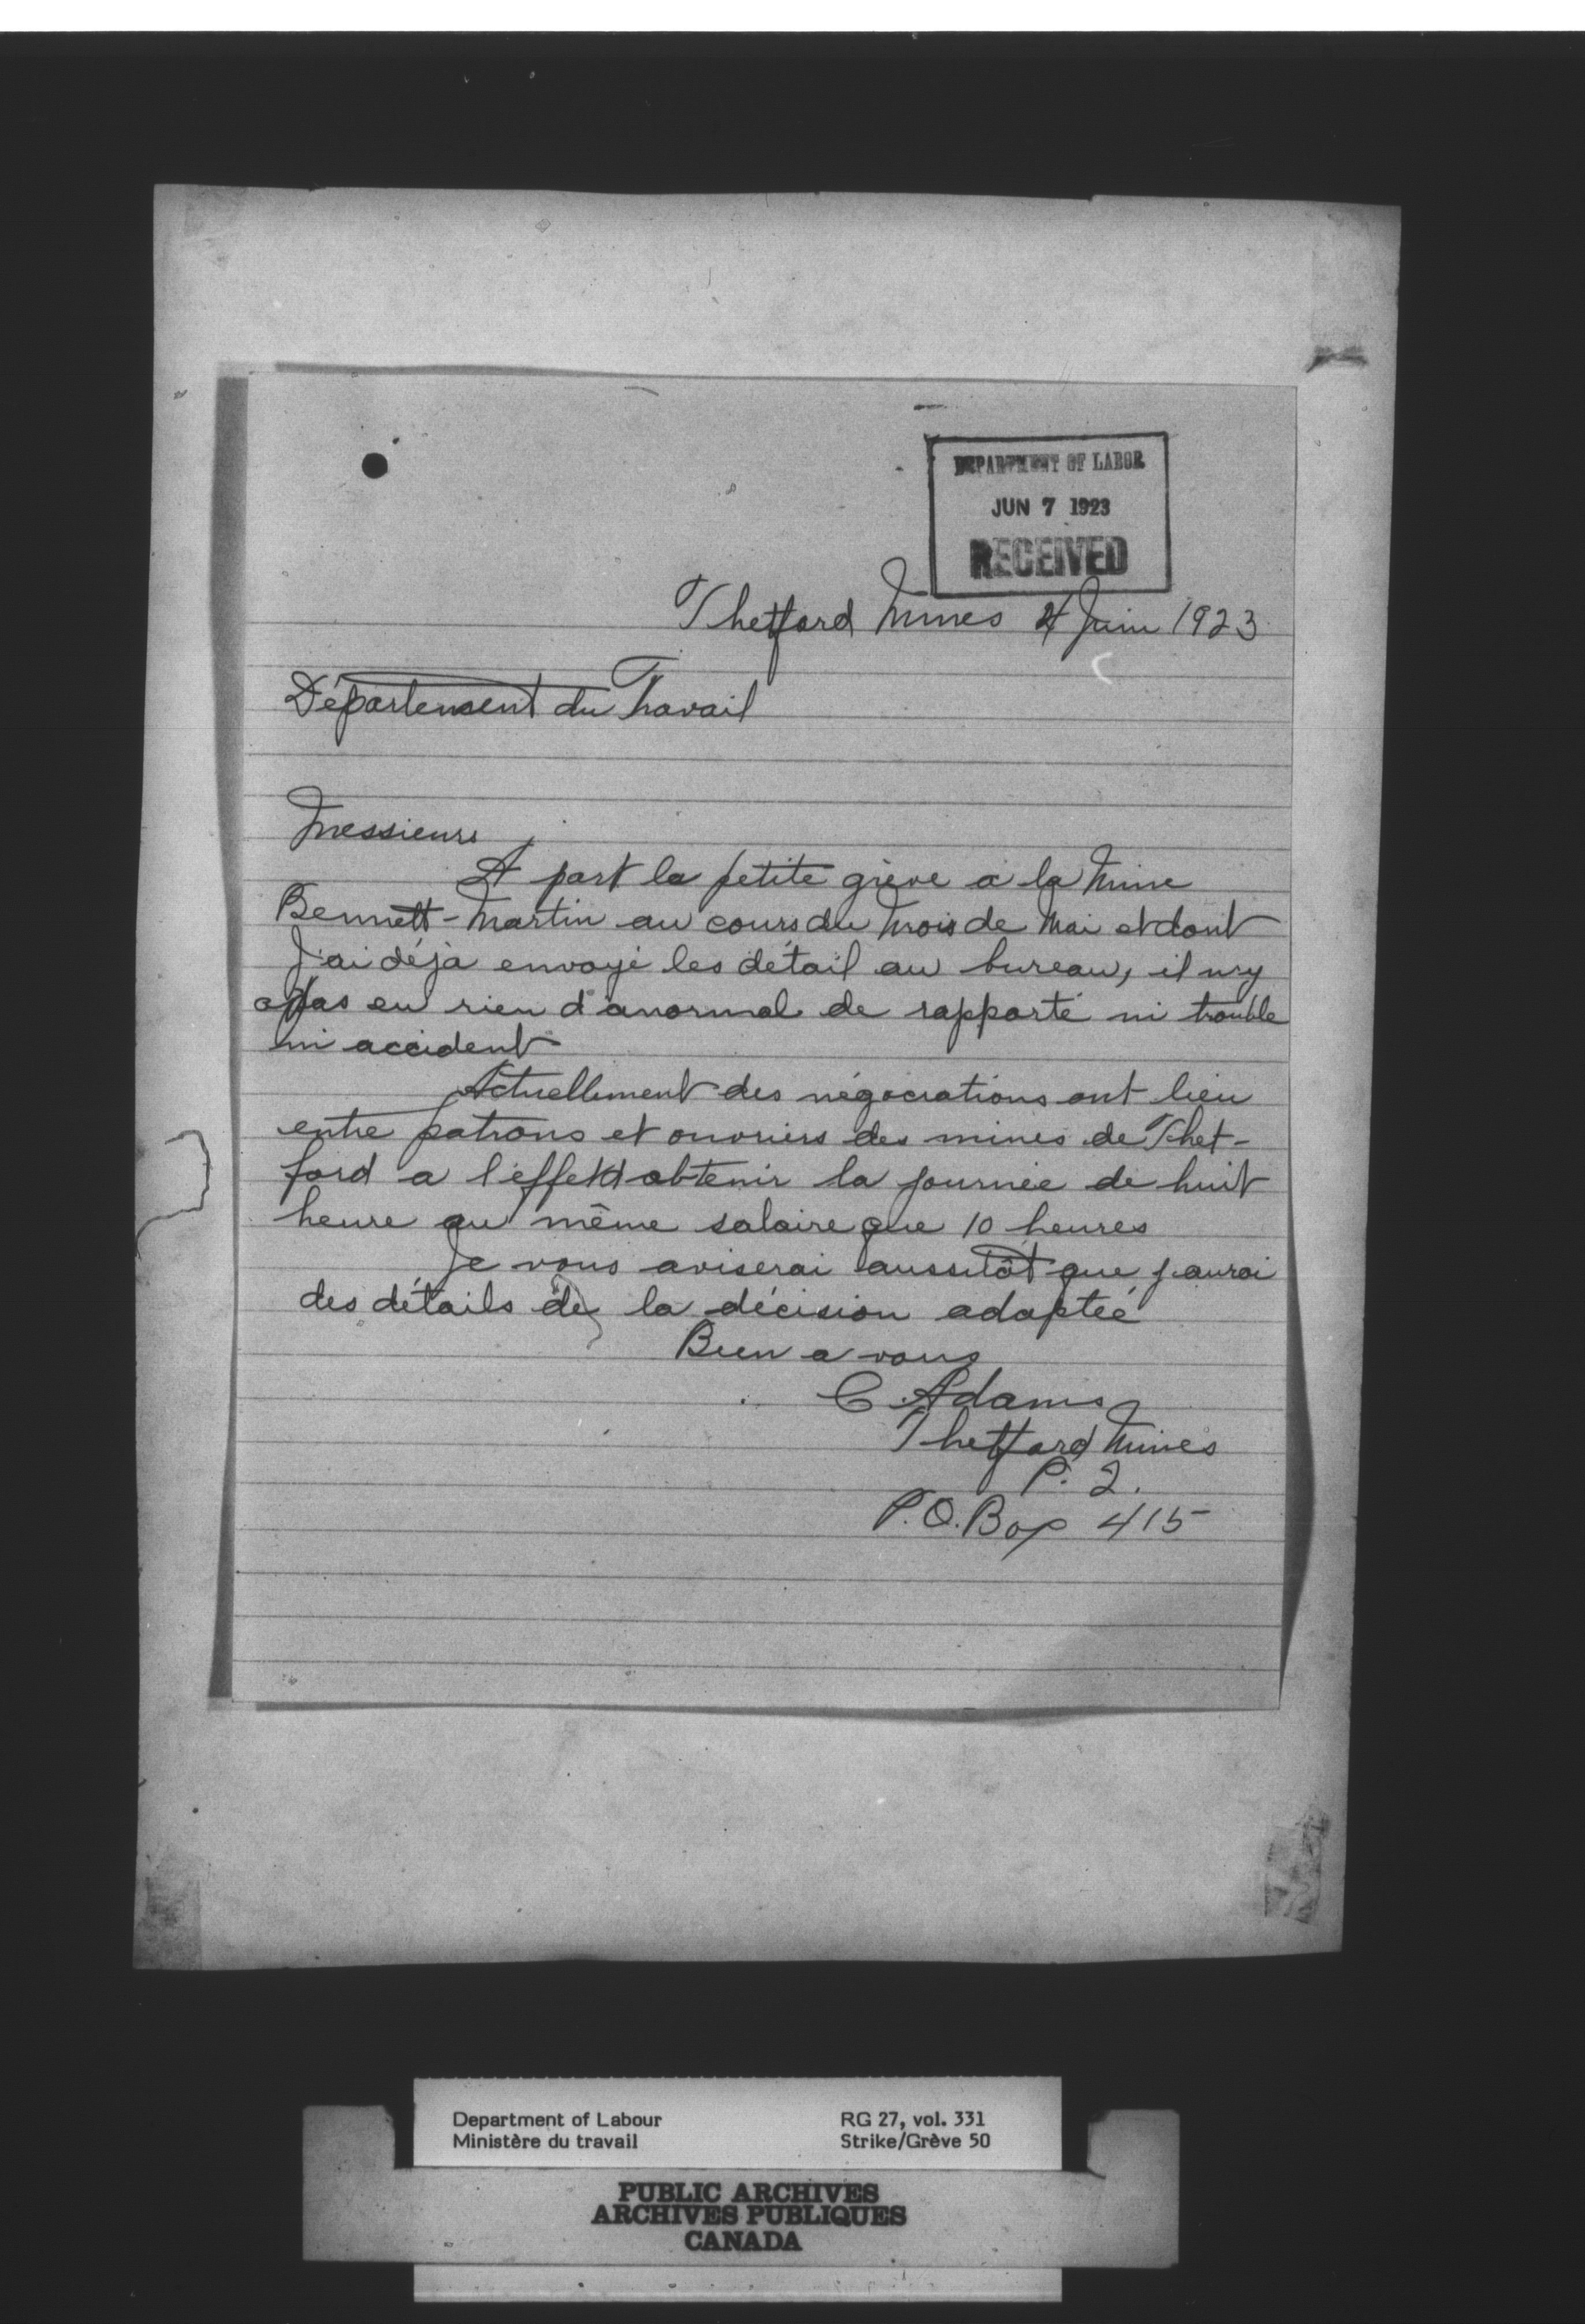 DEPARTMENT OF LABOR
JUN 7 1923
RECEIVED
Thetford Mines 4 Juin 1923
Département du Travail
Messieurs
A part la petite grève a la Mine
Bennett-Martin au cours du Mois de Mai et dont
J'ai déjà envoyé les détail au bureau, il n'y
a pas eu rien d'anormal de rapporté ni trouble
ni accident
Actuellement des négociations ont lieu
entre patrons et ouvriers des mines de Thet-
ford a l'effet d'obtenir la journée de huit
heure au même salaire que 10 heures
Je vous aviserai aussitôt que j'aurai
des détails de la décision adoptée
Bien a vous
C Adams
Thetford Mines
P. Q.
P.O. Box 415
Department of Labour
Ministère du travail
RG 27, vol. 331
Strike/Grève 50
PUBLIC ARCHIVES
ARCHIVES PUBLIQUES
CANADA